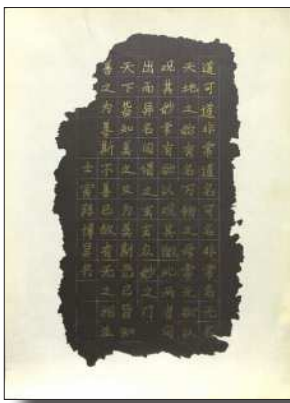 道可道非常道名可名非常名无名
天地之始有名万物之母常无欲以
观其妙常有欲以观其徼此两者同
出而异名同谓之玄玄众妙之门
天下皆知美之为美斯恶已皆知
善之为善斯不善已故有无之相生